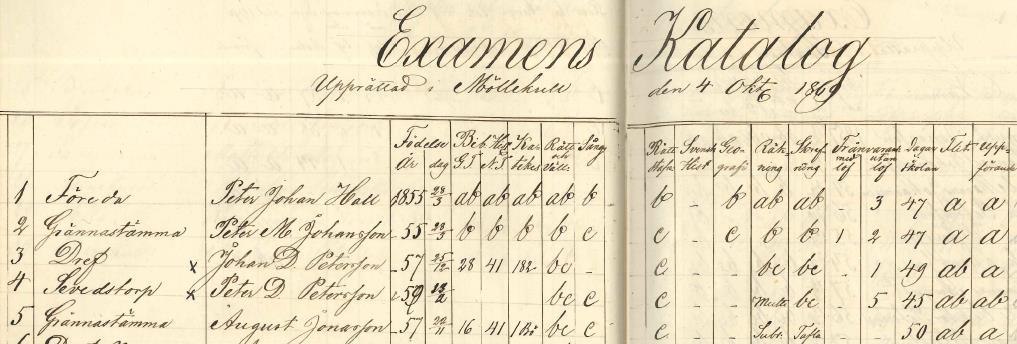 Examens Katalog
Upprättad i Möllekull den 4 Okt 1869
Födelse Bib. Hist. Ka- Rätt Sång Rätt Svensk Geo- Räk- Skrif- Frånvarande Dagar Flit Upp-
År dag G.T. N.T. tekes och skrifn Hist grafi ning ning med utan skolan förande
löf löf
1 Föreda Peter Johan Hall 1855 28/3 ab ab ab ab b b - b ab ab - 3 47 a a
2 Grännastämma Peter M Johansson - 55 23/3 b b b b c c - c b b 1 2 47 a a
3 Dref x Johan D. Petersson - 57 25/12 28 41 182 bc - c - - bc bc - 1 49 ab a
4 Sevedstorp x Peter D Petersson - 59 12/2 bc c c - - Mult bc - 5 45 ab ab
5 Grännastämma August Jonasson - 57 22/11 16 41 bc c c - - Subt. Tafla 50 ab a